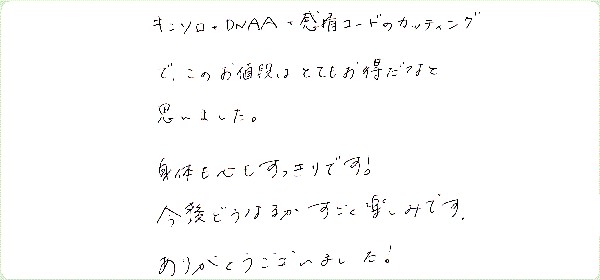 キンソロ+DNAA+感情コードのカッティング
で、このお値段はとてもお得だなと
思いました。
身体も心もすっきりです!
今後どうなるかすごく楽しみです。
ありがとうございました!